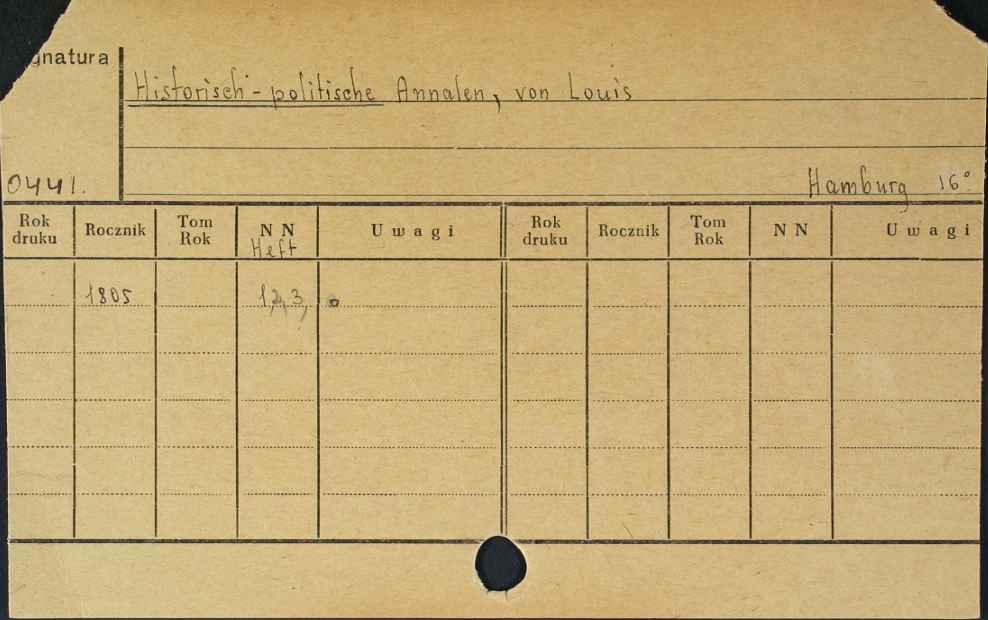 gnatura
Historisch-politische Annalen, von Louis
0441.
Hamburg 16°
Rok druku Rocznik Tom Rok N N Uwagi Rok druku Rocznik Tom Rok N N Uwagi
Heft
1805 1,2,3,